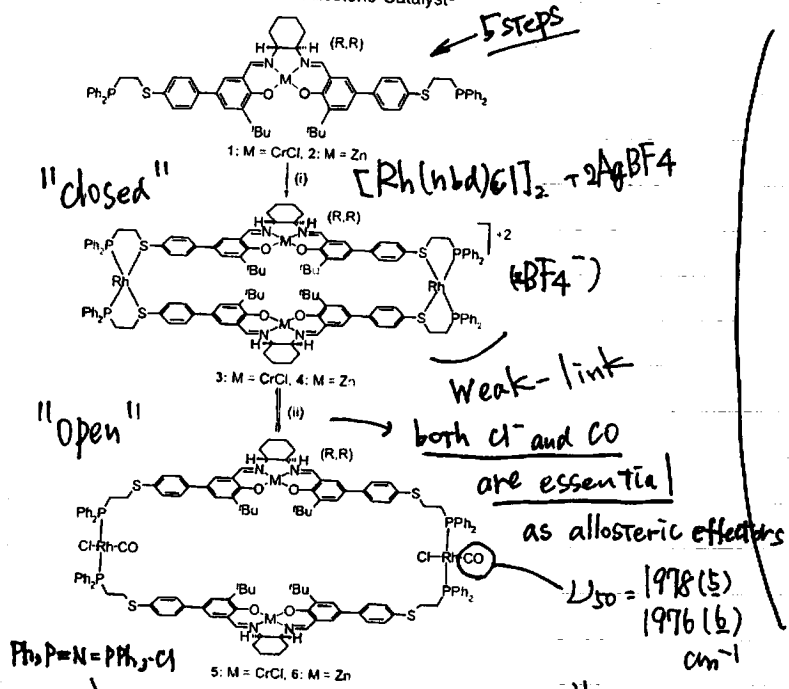 5 steps
H H (R,R)
=N N=
M
Ph₂P S O O S PPh₂
ᵗBu ᵗBu
1: M = CrCl, 2: M = Zn
"closed"
(i)
[Rh(nbd)Cl]₂ + 2AgBF4
H H (R,R)
=N N=
M
]+2
Ph₂P S O O S PPh₂
ᵗBu ᵗBu
Rh Rh
(2BF4⁻)
ᵗBu ᵗBu
Ph₂P S O O S PPh₂
M
=N N=
H H
3: M = CrCl, 4: M = Zn
Weak-link
"Open"
(ii)
both Cl⁻ and CO
are essential
as allosteric effectors
H H (R,R)
=N N=
M
S O O S
ᵗBu ᵗBu
Ph₂P PPh₂
Cl-Rh-CO Cl-Rh-CO
Ph₂P PPh₂
ᵗBu ᵗBu
S O O S
M
=N N=
H H
1978 (5)
1976 (6)
cm⁻¹
Ph₃P=N=PPh₃·Cl
5: M = CrCl, 6: M = Zn